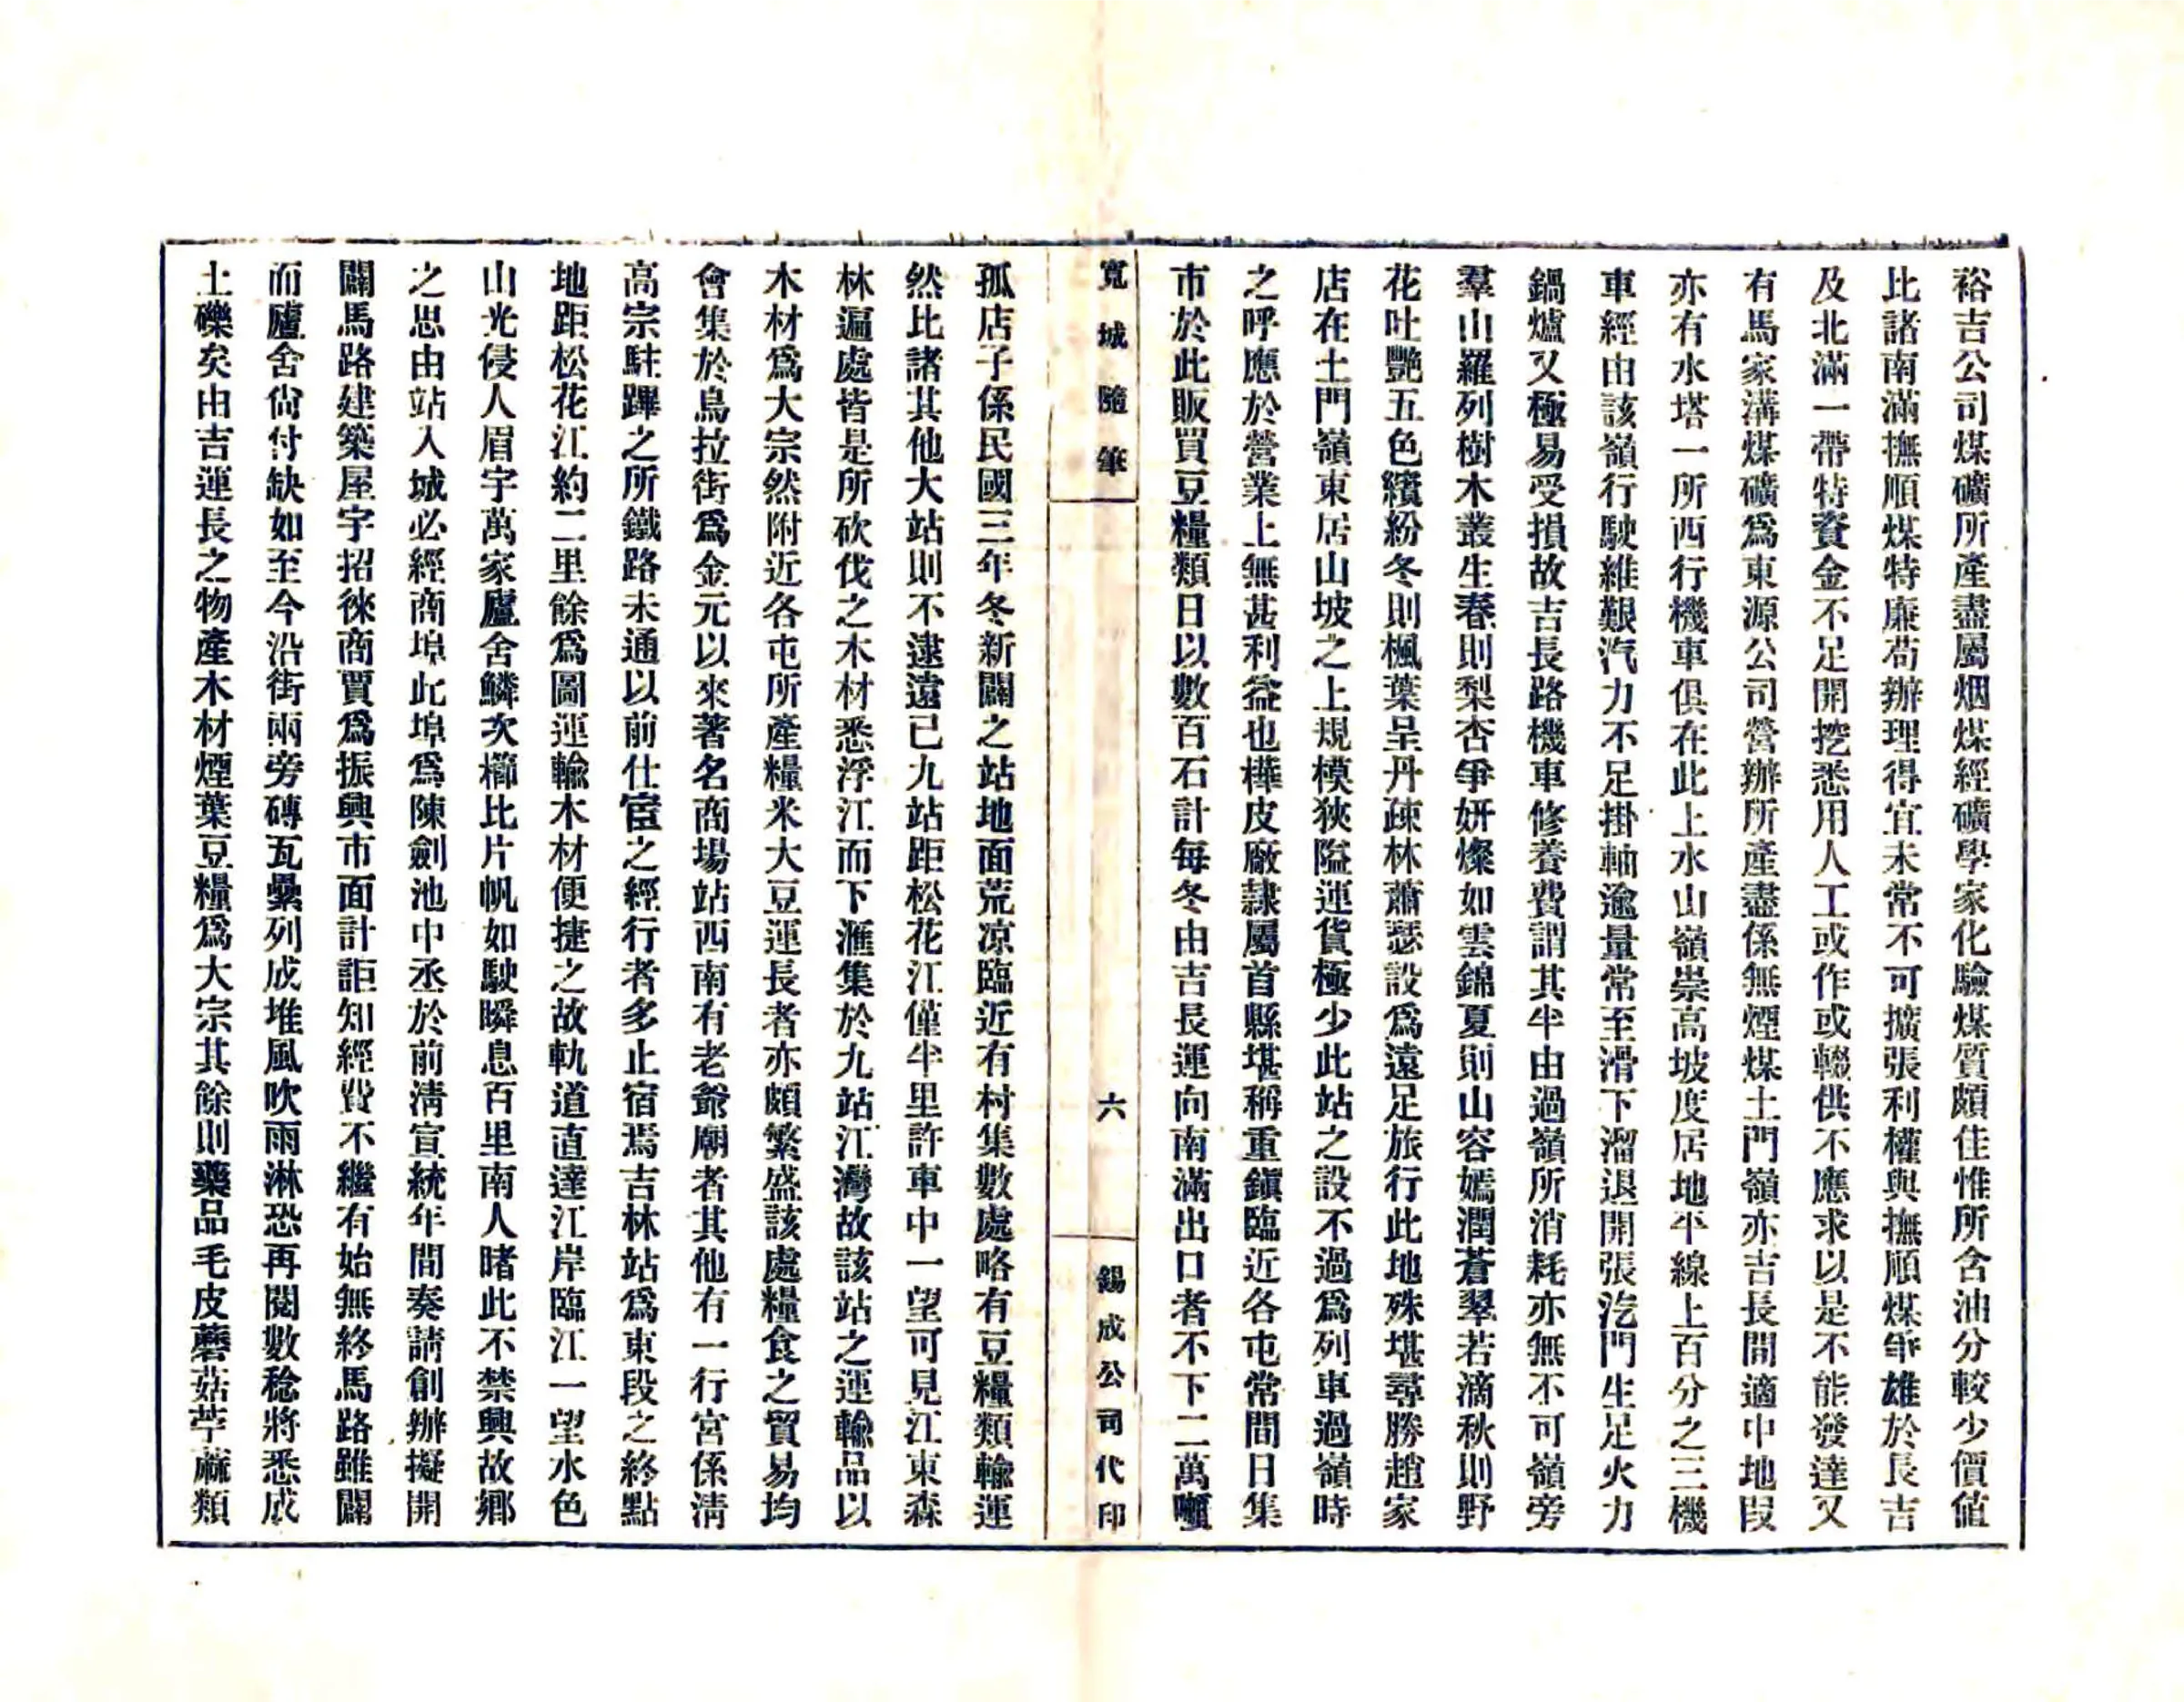 裕吉公司煤礦所產盡屬烟煤經礦學家化驗煤質頗佳惟所含油分較少價値
比諸南滿撫順煤特廉苟辦理得宜未常不可擴張利權與撫順煤爭雄於長吉
及北滿一帶特資金不足開挖悉用人工或作或輟供不應求以是不能發達又
有馬家溝煤礦爲東源公司營辦所產盡係無煙煤土門嶺亦吉長間適中地段
亦有水塔一所西行機車俱在此上水山嶺崇高坡度居地平線上百分之三機
車經由該嶺行駛維艱汽力不足掛軸逾量常至滑下溜退開張汽門生足火力
鍋爐又極易受損故吉長路機車修養費謂其半由過嶺所消耗亦無不可嶺旁
羣山羅列樹木叢生春則梨杏爭妍燦如雲錦夏則山容嫣潤蒼翠若滴秋則野
花吐艷五色繽紛冬則楓葉呈丹疎林蕭瑟設爲遠足旅行此地殊堪尋勝趙家
店在土門嶺東居山坡之上規模狹隘運貨極少此站之設不過爲列車過嶺時
之呼應於營業上無甚利益也樺皮廠隷屬首縣堪稱重鎭臨近各屯常間日集
市於此販買豆糧類日以數百石計每冬由吉長運向南滿出口者不下二萬噸
寬城隨筆
六
錫成公司代印
孤店子係民國三年冬新闢之站地面荒凉臨近有村集數處略有豆糧類輸運
然比諸其他大站則不逮遠已九站距松花江僅半里許車中一望可見江東森
林遍處皆是所砍伐之木材悉浮江而下滙集於九站江灣故該站之運輸品以
木材爲大宗然附近各屯所產糧米大豆運長者亦頗繁盛該處糧食之貿易均
會集於烏拉街爲金元以來著名商場站西南有老爺廟者其他有一行宮係淸
高宗駐蹕之所鐵路未通以前仕宦之經行者多止宿焉吉林站爲東段之終點
地距松花江約二里餘爲圖運輸木材便捷之故軌道直達江岸臨江一望水色
山光侵人眉宇萬家廬舍鱗次櫛比片帆如駛瞬息百里南人睹此不禁興故鄕
之思由站入城必經商埠此埠爲陳劍池中丞於前淸宣統年間奏請創辦擬開
闢馬路建築屋宇招徠商賈爲振興市面計詎知經費不繼有始無終馬路雖闢
而廬舍尙付缺如至今沿街兩旁磚瓦纍列成堆風吹雨淋恐再閱數稔將悉成
土礫矣由吉運長之物產木材煙葉豆糧爲大宗其餘則藥品毛皮蘑菇苧蔴類